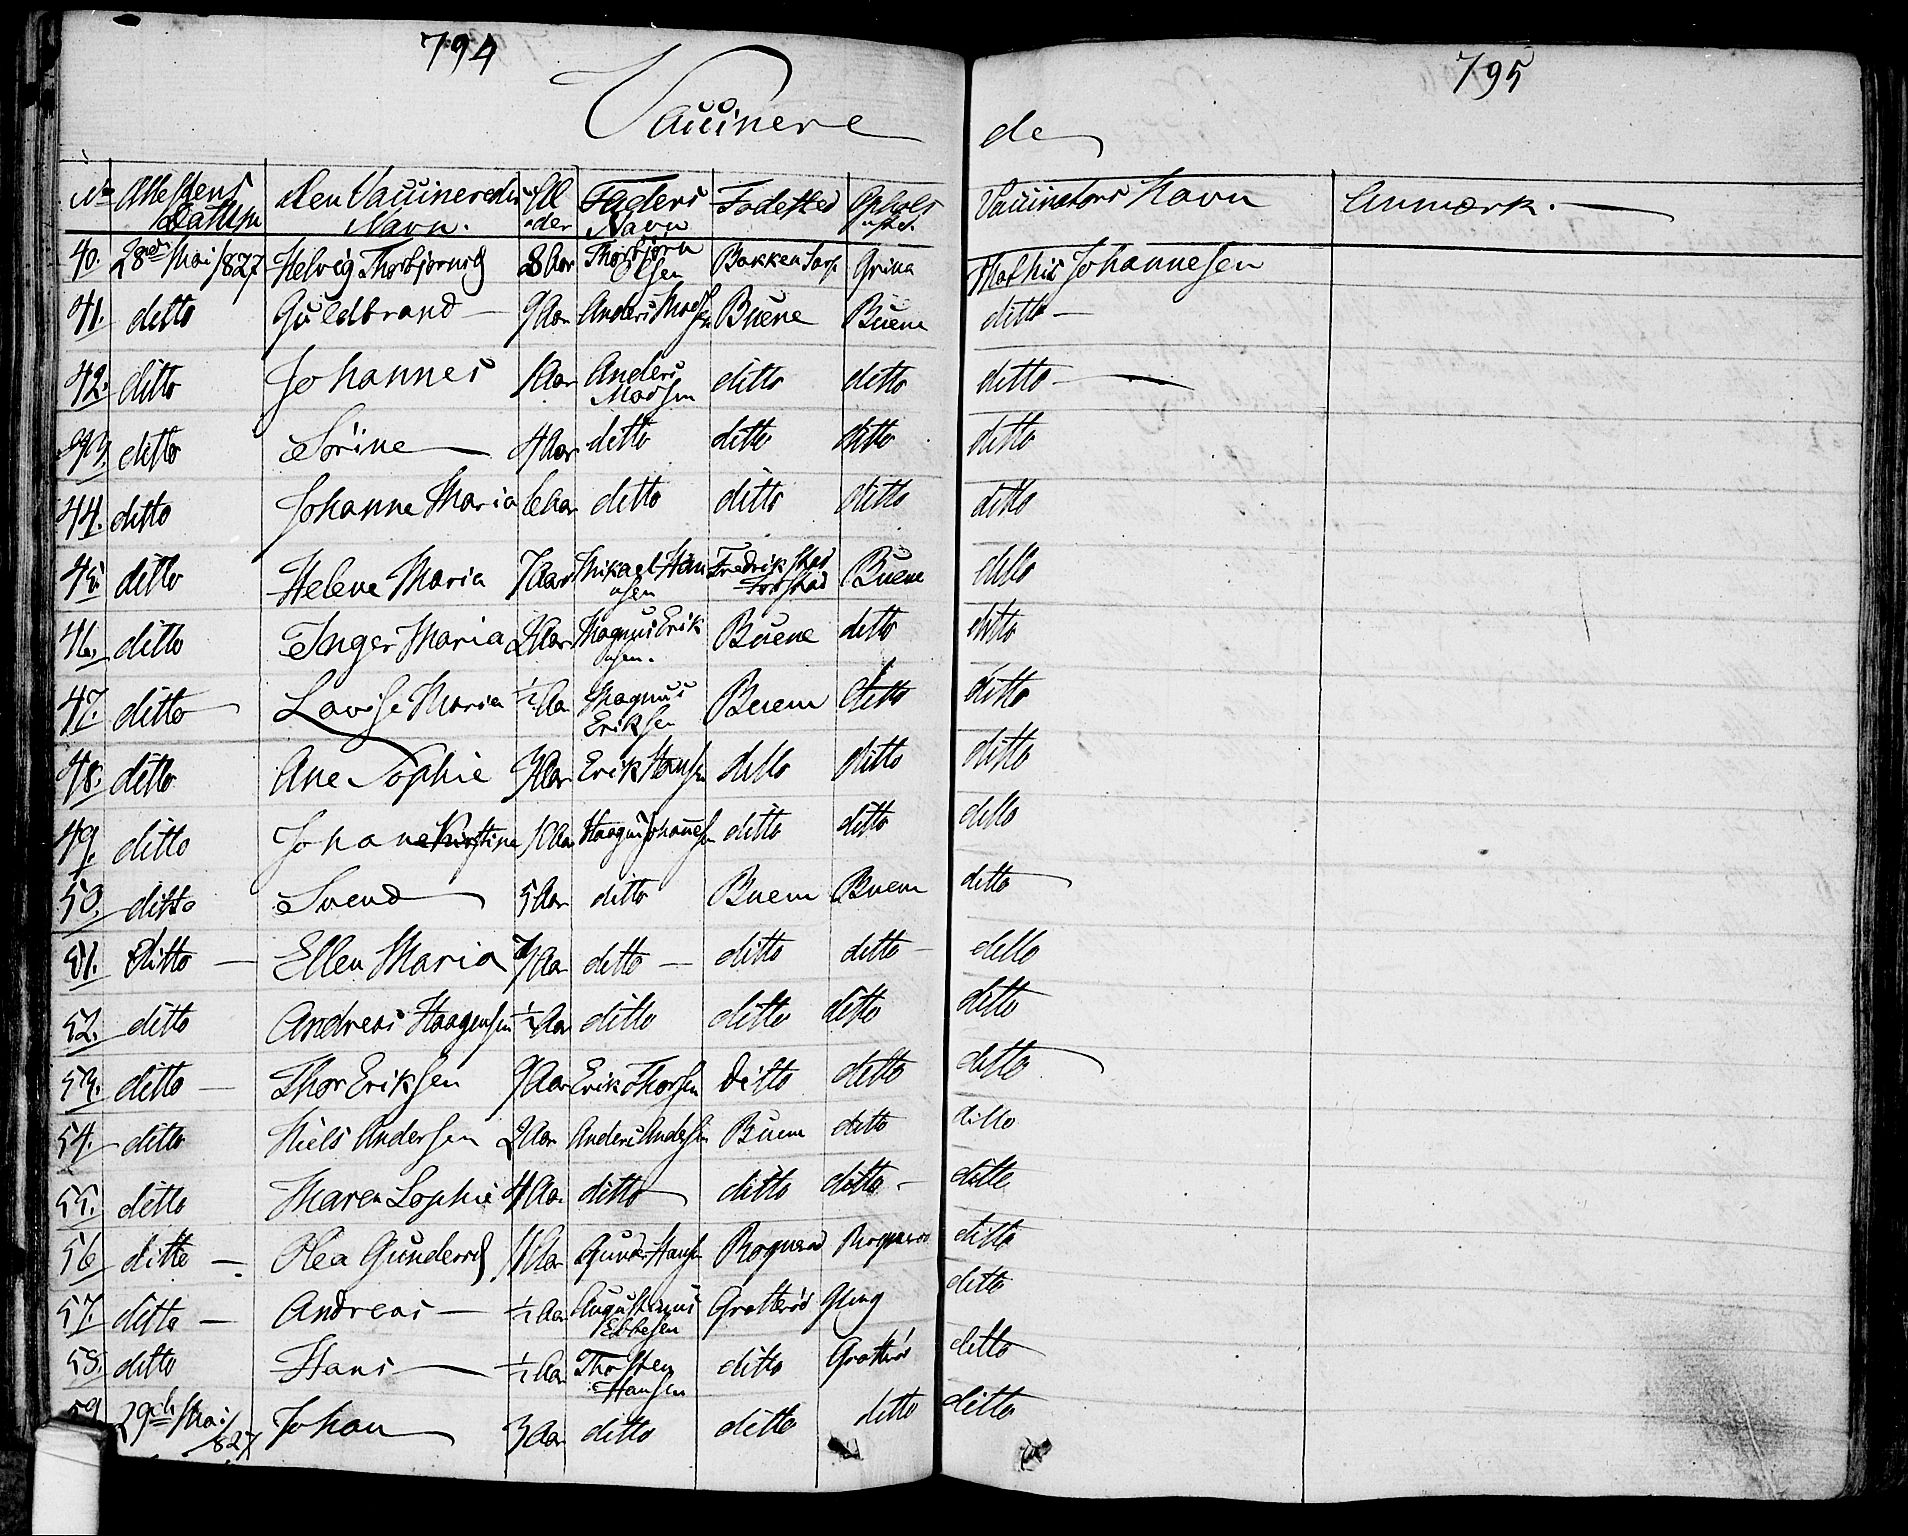 794
795
Vaccinere
de
No Attestens Datum den Vaccineredes Navn. Alder Faders Navn Fødested Opholdsted Vaccinators Navn Anmærk.
40. 28de Mai 1827 Helvig Thorbjørnsd 8 Aar Thorbjørn Olsen Bakken Grina Mathis Johannesen
41. ditto Guldbrand 9 Aar Anders Madsen Buene Buene ditto
42. ditto Johannes 1 Aar Anders Madsen ditto ditto ditto
43. ditto Sørine 4 Aar ditto ditto ditto ditto
44. ditto Johanne Maria 6 Aar ditto ditto ditto ditto
45. ditto Helene Maria 7 Aar Mikael Hansen Fredrikstad Buene ditto
46. ditto Inger Maria 2 Aar Magnus Eriksen. Buene ditto ditto
47. ditto Lovise Maria ½ Aar Magnus Eriksen Buene ditto ditto
48. ditto Ane Sophie Aar Erik Hansen ditto ditto ditto
49. ditto Johane Kirstine Aar Haagen Johannesen ditto ditto ditto
50. ditto Svend 5 Aar ditto Buene Buene ditto
51. ditto Ellen Maria Aar ditto ditto ditto ditto
52. ditto Andreas Haagensen ½ Aar ditto ditto ditto ditto
53. ditto Thor Eriksen 9 Aar Erik Thorsen ditto ditto ditto
54. ditto Niels Andersen 2 Aar Anders Andersen Buene ditto ditto
55. ditto Maren Sophie 4 Aar ditto ditto ditto ditto
56 ditto Olea Gundersd Aar Gunder Hansen Rognerød Rognerød ditto
57. ditto Andreas ½ Aar Augustinus Ebbesen Gratterød ditto
58. ditto Hans ½ Aar Thorsten Hansen ditto Gratterød ditto
59 29de Mai 1827 Johan 3 Aar ditto ditto ditto ditto